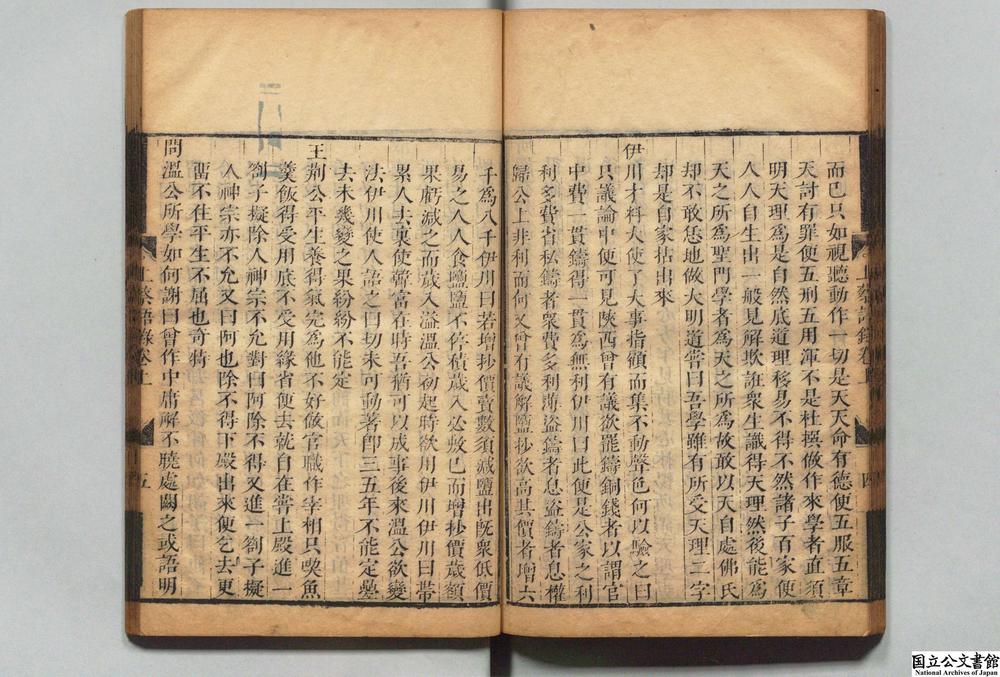 而已只如視聽動作一切是天天命有德便五服五章
天討有罪便五刑五用渾不是杜撰做作來學者直須
明天理爲是自然底道理移易不得不然諸子百家便
人人自生出一般見解欺誑衆生識得天理然後能爲
天之所爲聖門學者爲天之所爲故敢以天自處佛氏
却不敢恁地做大明道嘗曰吾學雖有所受天理二字
却是自家拈出來
伊川才料大使了大事指顧而集不動聲色何以驗之曰
只議論中便可見陝西曾有議欲罷鑄銅錢者以謂官
中費一貫鑄得一貫爲無利伊川曰此便是公家之利
利多費省私鑄者衆費多利薄盜鑄者息盜鑄者息權
歸公上非利而何又曾有議解鹽抄欲高其價者增六
千爲八千伊川曰若增抄價賣數須减鹽出旣衆低價
易之人人食鹽鹽不停積歲入必敷已而增抄價歲額
果虧減之而歲入溢溫公初起時欲用伊川伊川曰帶
累人去裏使韓富在時吾猶可以成事後來溫公欲變
法伊川使人語之曰切未可動著卽三五年不能定疊
去未幾變之果紛紛不能定
王荆公平生養得氣完爲他不好做官職作宰相只喫魚
羹飯得受用底不受用緣省便去就自在嘗上殿進一
劄子擬除人神宗不允對曰阿除不得又進一劄子擬
人神宗亦不允又曰阿也除不得下殿出來便乞去更
畱不住平生不屈也奇特
問溫公所學如何謝曰曾作中庸解不曉處闕之或語明
上蔡語錄卷上
四
上蔡語錄卷上
五
国立公文書館
National Archives of Japan